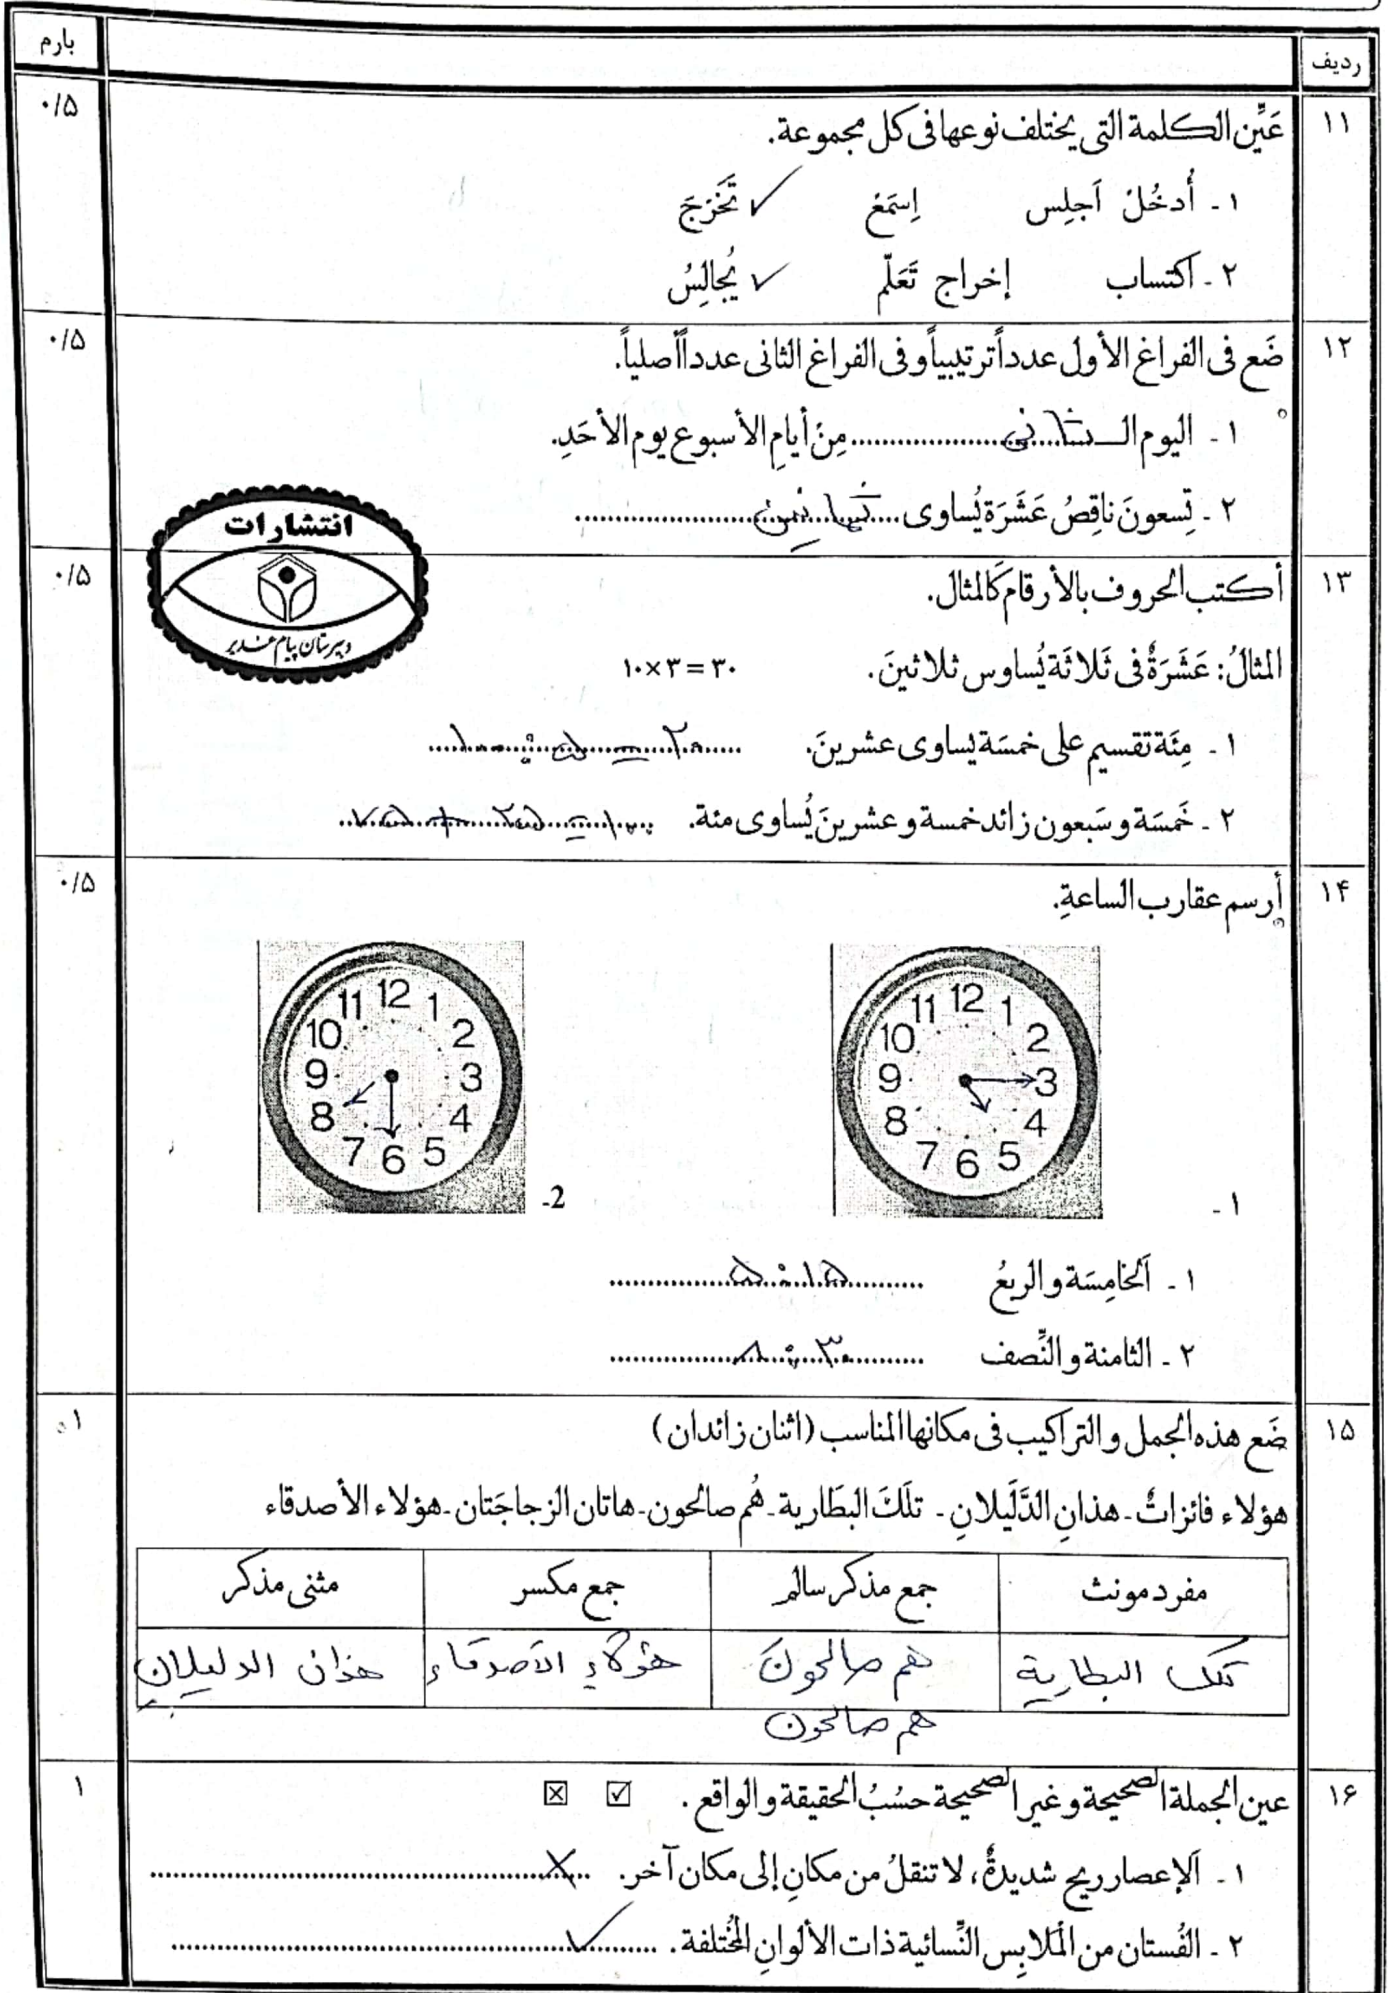 ردیف
بارم
۱۱
عَیِّن الکلمة التی یختلف نوعها فی کل مجموعة.
۰/۵
۱ ـ أُدخُلْ اَجلِس اِسمَعْ تَخَرَّجَ ✓
۲ ـ اکتساب إخراج تَعَلّم یُجالِسُ ✓
۱۲
ضَع فی الفراغ الأول عدداً ترتیبیاً و فی الفراغ الثانی عدداً أصلیاً.
۰/۵
۱ ـ الیوم الـ ثانی مِنْ أیامِ الأسبوع یوم الأحَدِ.
۲ ـ تِسعونَ ناقِصُ عَشَرَة یُساوی ثمانین
انتشارات
دبیرستان پیام غدیر
۱۳
أکتب الحروف بالأرقام کَالمثال.
۰/۵
المثالُ: عَشَرَةٌ فی ثَلاثَة یُساوس ثلاثینَ. ۱۰×۳=۳۰
۱ ـ مِئَة تقسیم علی خمسَة یساوی عشرینَ. ۱۰۰÷۵=۲۰
۲ ـ خَمسَة و سَبعون زائد خمسة و عشرینَ یُساوی مئة. ۷۵+۲۵=۱۰۰
۱۴
أرسم عقارب الساعةِ.
۰/۵
12 1 2 3 4 5 6 7 8 9 10 11
۱ ـ
12 1 2 3 4 5 6 7 8 9 10 11
2-
۱ ـ اَلخامِسَة و الربعُ ۵:۱۵
۲ ـ الثامنة و النِّصف ۸:۳۰
۱۵
ضَع هذه الجمل و التراکیب فی مکانها المناسب (اثنان زائدان)
۱
هؤلاء فائزاتٌ ـ هذانِ الدَّلَیلانِ ـ تلَكَ البطَاریة ـ هُم صالحون ـ هاتان الزجاجَتان ـ هؤلاء الأصدقاء
مفرد مونث جمع مذکر سالم جمع مکسر مثنی مذکر
تلک البطاریة هم صالحونَ هؤلاءِ الاَصدقاء هذان الدلیلانِ
هم صالحون
۱۶
عین الجملة الصحیحة و غیر الصحیحة حسُبُ الحقیقة و الواقع. ☑ ☒
۱
۱ ـ اَلإعصار ریح شدیدةٌ، لا تنقلُ من مکانِ إلی مکان آخر. ✗
۲ ـ الفُستان من المَلابِس النِّسائیة ذات الألوانِ المُختلفة. ✓